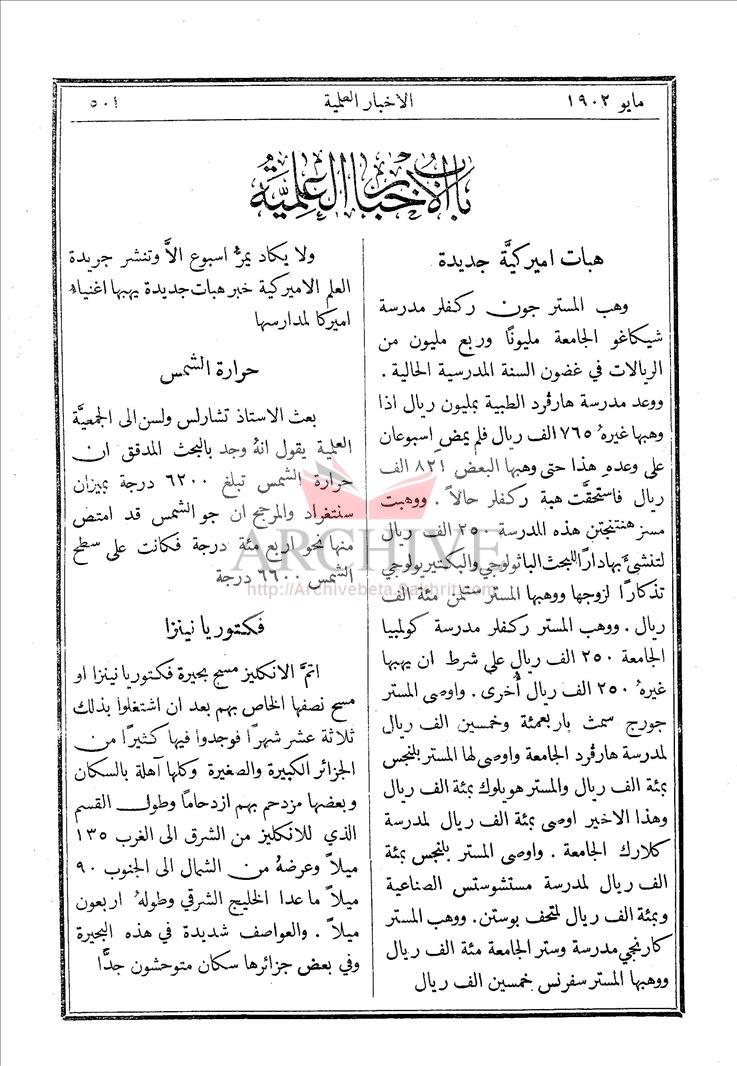 مايو ١٩٠٢
الاخبار العلمية
٥٠١
باب الاخبار العلمية
هبات اميركيَّة جديدة
وهب المستر جون ركفلر مدرسة
شيكاغو الجامعة مليونًا وربع مليون من
الريالات في غضون السنة المدرسية الحالية .
ووعد مدرسة هارڤرد الطبية بمليون ريال اذا
وهبها غيرهُ ٧٦٥ الف ريال فلم يمضِ اسبوعان
على وعدهِ هذا حتى وهبها البعض ٨٢١ الف
ريال فاستحقَّت هبة ركفلر حالاً . ووهبت
مسز هنتنجتن هذه المدرسة ٢٥٠ الف ريال
لتنشئ بها دارًا للبحث الباثولوجي والبكتيريولوجي
تذكارًا لزوجها ووهبها المستر سمن مئة الف
ريال . ووهب المستر ركفلر مدرسة كولمبيا
الجامعة ٢٥٠ الف ريال على شرط ان يهبها
غيرهُ ٢٥٠ الف ريال أُخرى . واوصى المستر
جورج سمث باربعمئة وخمسين الف ريال
لمدرسة هارڤرد الجامعة واوصى لها المستر بلنجس
بمئة الف ريال والمستر هويلوك بمئة الف ريال
وهذا الاخير اوصى بمئة الف ريال لمدرسة
كلارك الجامعة . واوصى المستر بلنجس بمئة
الف ريال لمدرسة مستشوستس الصناعية
وبمئة الف ريال لمتحف بوستن . ووهب المستر
كارنجي مدرسة وستر الجامعة مئة الف ريال
ووهبها المستر سفرنس خمسين الف ريال
ولا يكاد يمرُّ اسبوع الاَّ وتنشر جريدة
العلم الاميركية خبر هبات جديدة يهبها اغنياء
اميركا لمدارسها
حرارة الشمس
بعث الاستاذ تشارلس ولسن الى الجمعيَّة
العلمية يقول انهُ وجد بالبحث المدقق ان
حرارة الشمس تبلغ ٦٢٠٠ درجة بميزان
سنتغراد والمرجح ان جو الشمس قد امتص
منها نحو اربع مئة درجة فكانت على سطح
الشمس ٦٦٠٠ درجة
فكتوريا نينزا
اتمَّ الانكليز مسح بحيرة فكتوريا نينزا او
مسح نصفها الخاص بهم بعد ان اشتغلوا بذلك
ثلاثة عشر شهرًا فوجدوا فيها كثيرًا من
الجزائر الكبيرة والصغيرة وكلها آهلة بالسكان
وبعضها مزدحم بهم ازدحامًا وطول القسم
الذي للانكليز من الشرق الى الغرب ١٣٥
ميلاً وعرضهُ من الشمال الى الجنوب ٩٠
ميلاً ما عدا الخليج الشرقي وطولهُ اربعون
ميلاً . والعواصف شديدة في هذه البحيرة
وفي بعض جزائرها سكان متوحشون جدًّا
ARCHIVE
http://Archivebeta.Sakhrit.com